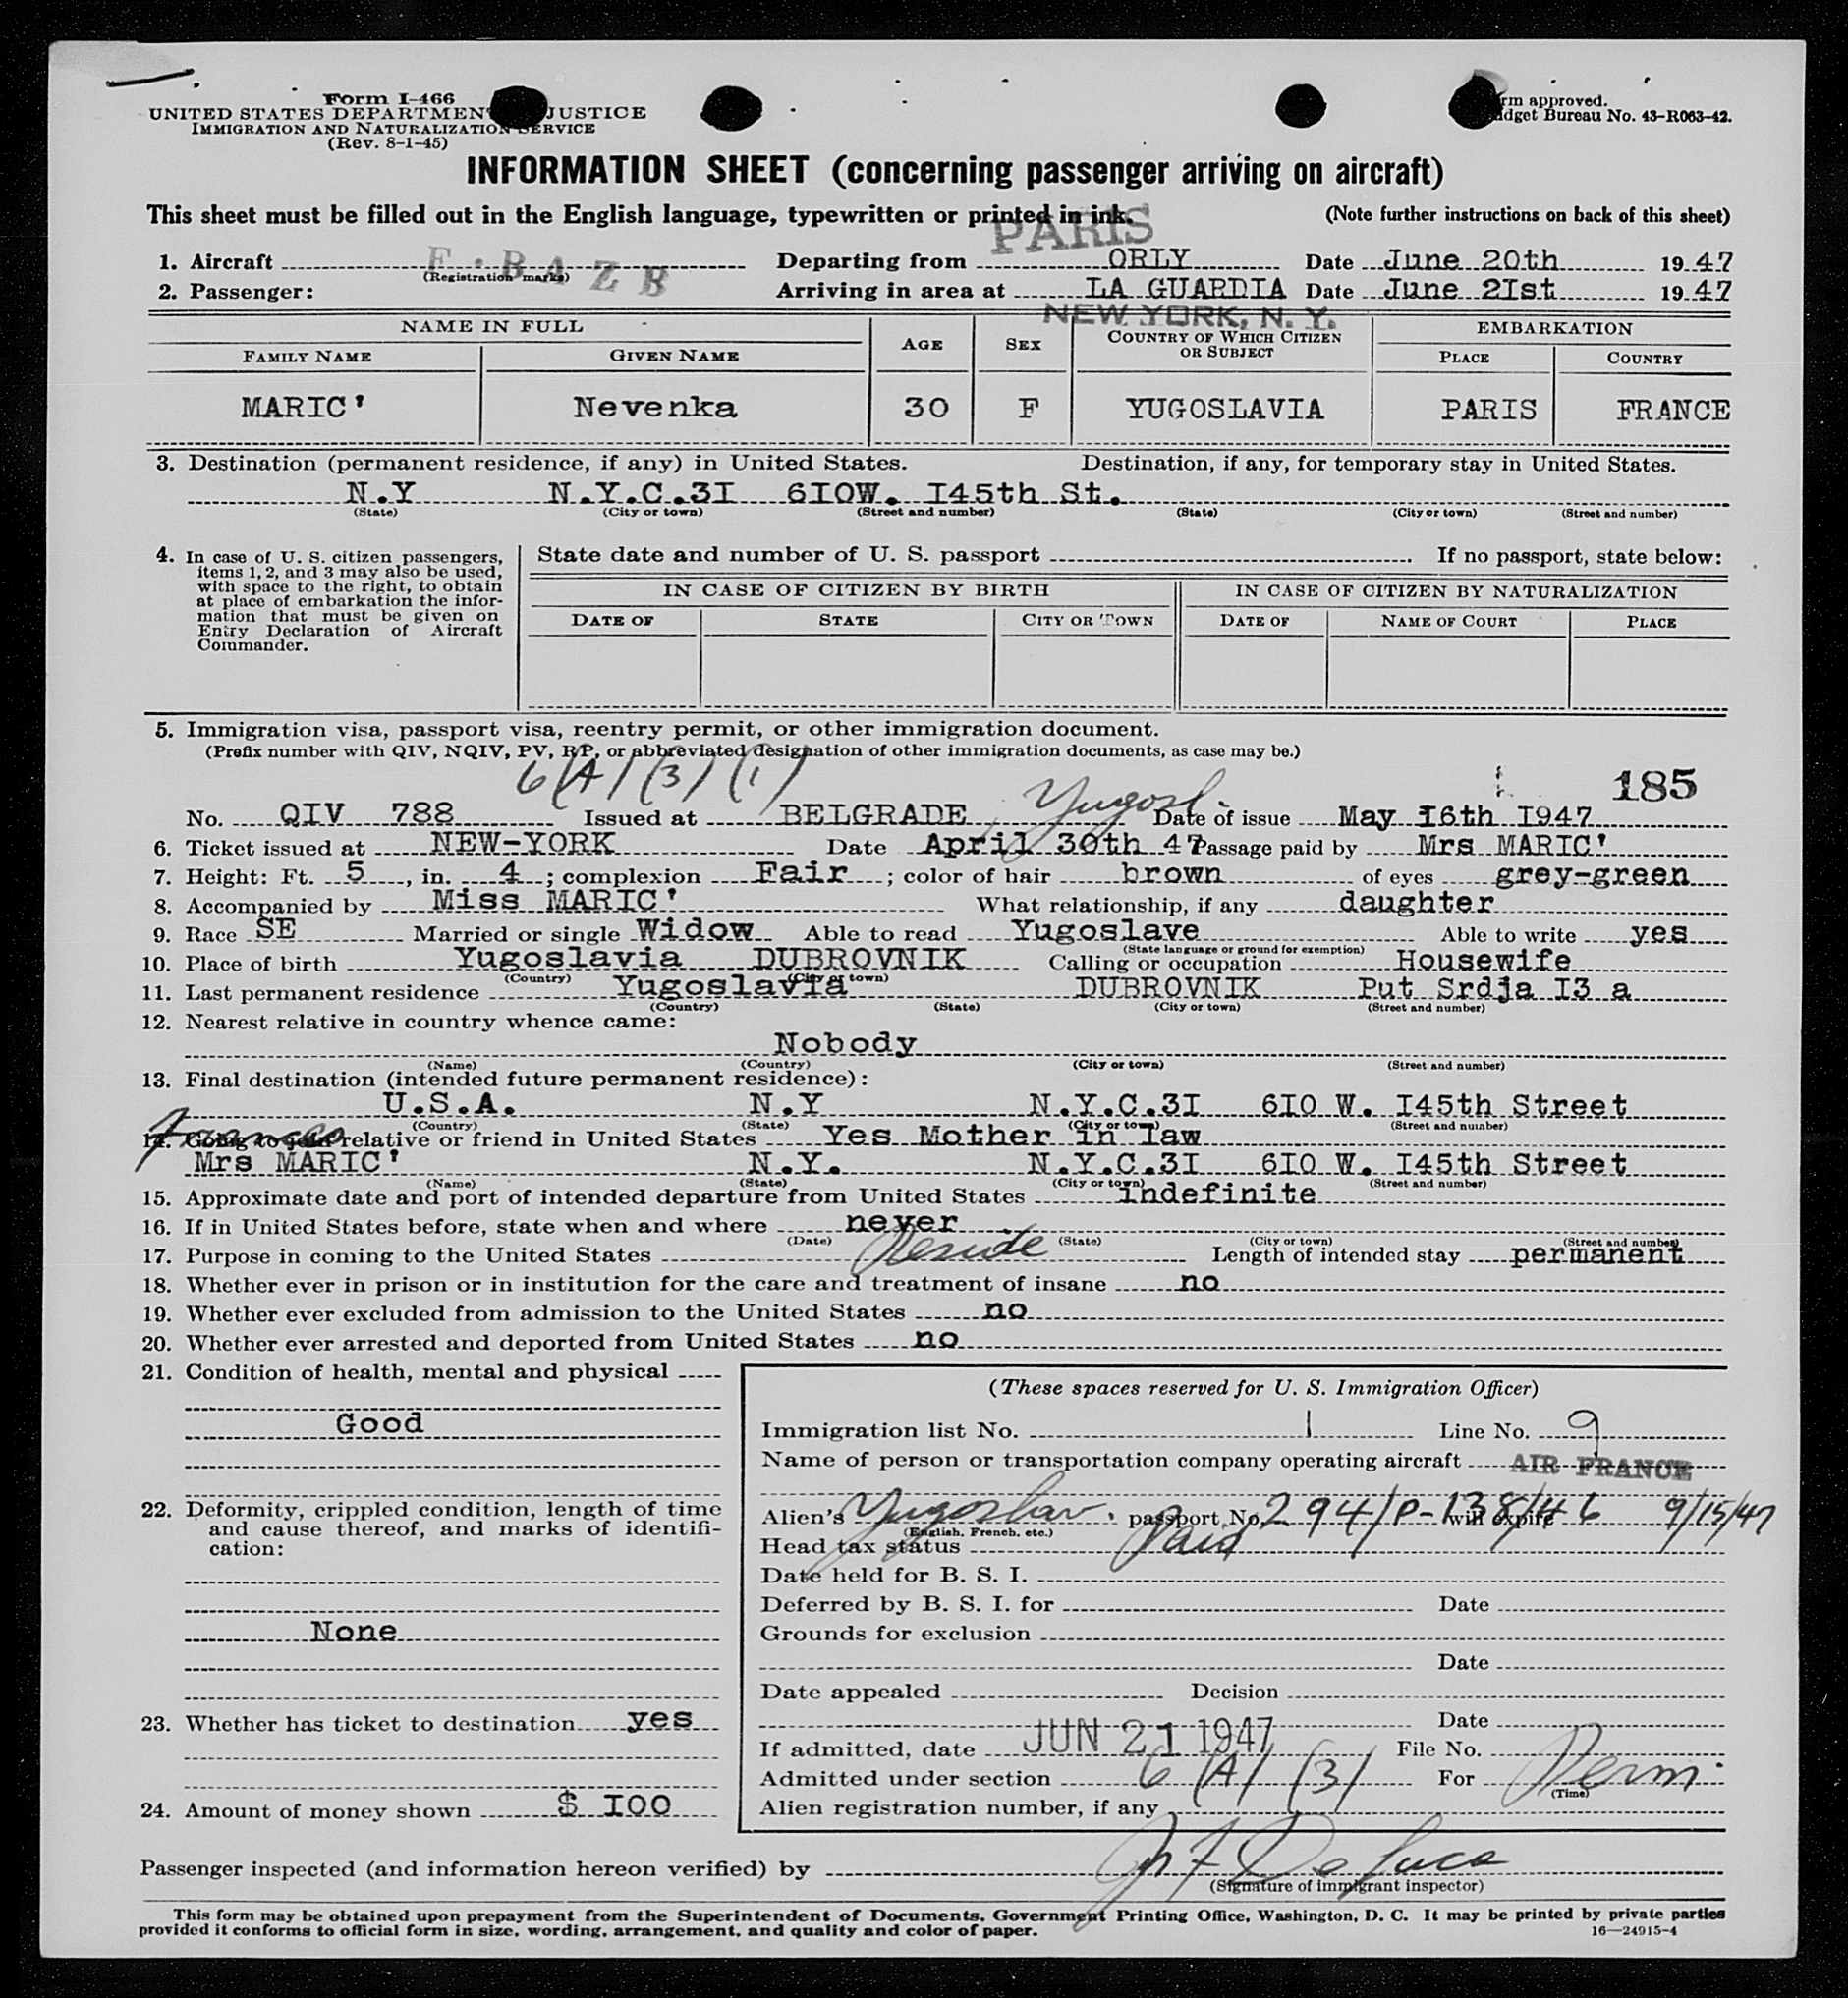 Form I-466
UNITED STATES DEPARTMENT JUSTICE
IMMIGRATION AND NATURALIZATION SERVICE
(Rev. 8-1-45)
rm approved.
dget Bureau No. 43-R063-42.
INFORMATION SHEET (concerning passenger arriving on aircraft)
This sheet must be filled out in the English language, typewritten or printed in ink. (Note further instructions on back of this sheet)
PARIS
1. Aircraft F-BAZB (Registration marks) Departing from ORLY Date June 20th 1947
2. Passenger: Arriving in area at LA GUARDIA Date June 2Ist 1947
NEW YORK, N. Y.
NAME IN FULL AGE SEX COUNTRY OF WHICH CITIZEN OR SUBJECT EMBARKATION
FAMILY NAME GIVEN NAME PLACE COUNTRY
MARIC' Nevenka 30 F YUGOSLAVIA PARIS FRANCE
3. Destination (permanent residence, if any) in United States. Destination, if any, for temporary stay in United States.
N.Y N.Y.C.3I 6IOW. I45th St.
(State) (City or town) (Street and number) (State) (City or town) (Street and number)
4. In case of U. S. citizen passengers, items 1, 2, and 3 may also be used, with space to the right, to obtain at place of embarkation the information that must be given on Entry Declaration of Aircraft Commander.
State date and number of U. S. passport If no passport, state below:
IN CASE OF CITIZEN BY BIRTH IN CASE OF CITIZEN BY NATURALIZATION
DATE OF STATE CITY OR TOWN DATE OF NAME OF COURT PLACE
5. Immigration visa, passport visa, reentry permit, or other immigration document.
(Prefix number with QIV, NQIV, PV, RP, or abbreviated designation of other immigration documents, as case may be.)
6(A)(3)(1) Yugosl. 185
No. QIV 788 Issued at BELGRADE Date of issue May I6th I947
6. Ticket issued at NEW-YORK Date April 30th 47 Passage paid by Mrs MARIC'
7. Height: Ft. 5, in. 4; complexion Fair; color of hair brown of eyes grey-green
8. Accompanied by Miss MARIC' What relationship, if any daughter
9. Race SE Married or single Widow Able to read Yugoslave Able to write yes
(State language or ground for exemption)
10. Place of birth Yugoslavia DUBROVNIK Calling or occupation Housewife
(Country) (City or town)
11. Last permanent residence Yugoslavia DUBROVNIK Put Srdja I3 a
(Country) (State) (City or town) (Street and number)
12. Nearest relative in country whence came:
Nobody
(Name) (Country) (City or town) (Street and number)
13. Final destination (intended future permanent residence):
U.S.A. N.Y N.Y.C.3I 6IO W. I45th Street
(Country) (State) (City or town) (Street and number)
14. Going to join relative or friend in United States Yes Mother in law
Mrs MARIC' N.Y. N.Y.C.3I 6IO W. I45th Street
(Name) (State) (City or town) (Street and number)
15. Approximate date and port of intended departure from United States indefinite
16. If in United States before, state when and where never
(Date) (State) (City or town) (Street and number)
17. Purpose in coming to the United States Reside Length of intended stay permanent
18. Whether ever in prison or in institution for the care and treatment of insane no
19. Whether ever excluded from admission to the United States no
20. Whether ever arrested and deported from United States no
21. Condition of health, mental and physical
Good
22. Deformity, crippled condition, length of time and cause thereof, and marks of identification:
None
23. Whether has ticket to destination yes
24. Amount of money shown $ IOO
(These spaces reserved for U. S. Immigration Officer)
Immigration list No. 1 Line No. 9
Name of person or transportation company operating aircraft AIR FRANCE
Alien's Yugoslav. passport No. 294/P-138/46 will expire 9/15/47
(English, French, etc.)
Head tax status Paid
Date held for B. S. I.
Deferred by B. S. I. for Date
Grounds for exclusion
Date
Date appealed Decision
Date
If admitted, date JUN 21 1947 File No.
Admitted under section 6(A)(3) For Perm.
(Time)
Alien registration number, if any
Passenger inspected (and information hereon verified) by
(Signature of immigrant inspector)
This form may be obtained upon prepayment from the Superintendent of Documents, Government Printing Office, Washington, D. C. It may be printed by private parties
provided it conforms to official form in size, wording, arrangement, and quality and color of paper. 16—24915-4